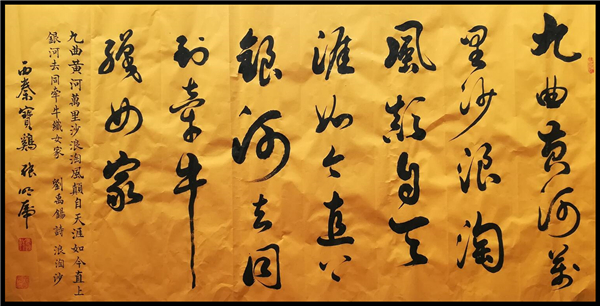 九曲黄河萬
里沙浪淘
風顛自天
涯如今直上
銀河去同
到牽牛
織女家
九曲黄河萬里沙浪淘風顛自天涯如今直上
銀河去同牽牛織女家 劉禹錫詩 浪淘沙
西秦寶鷄 張